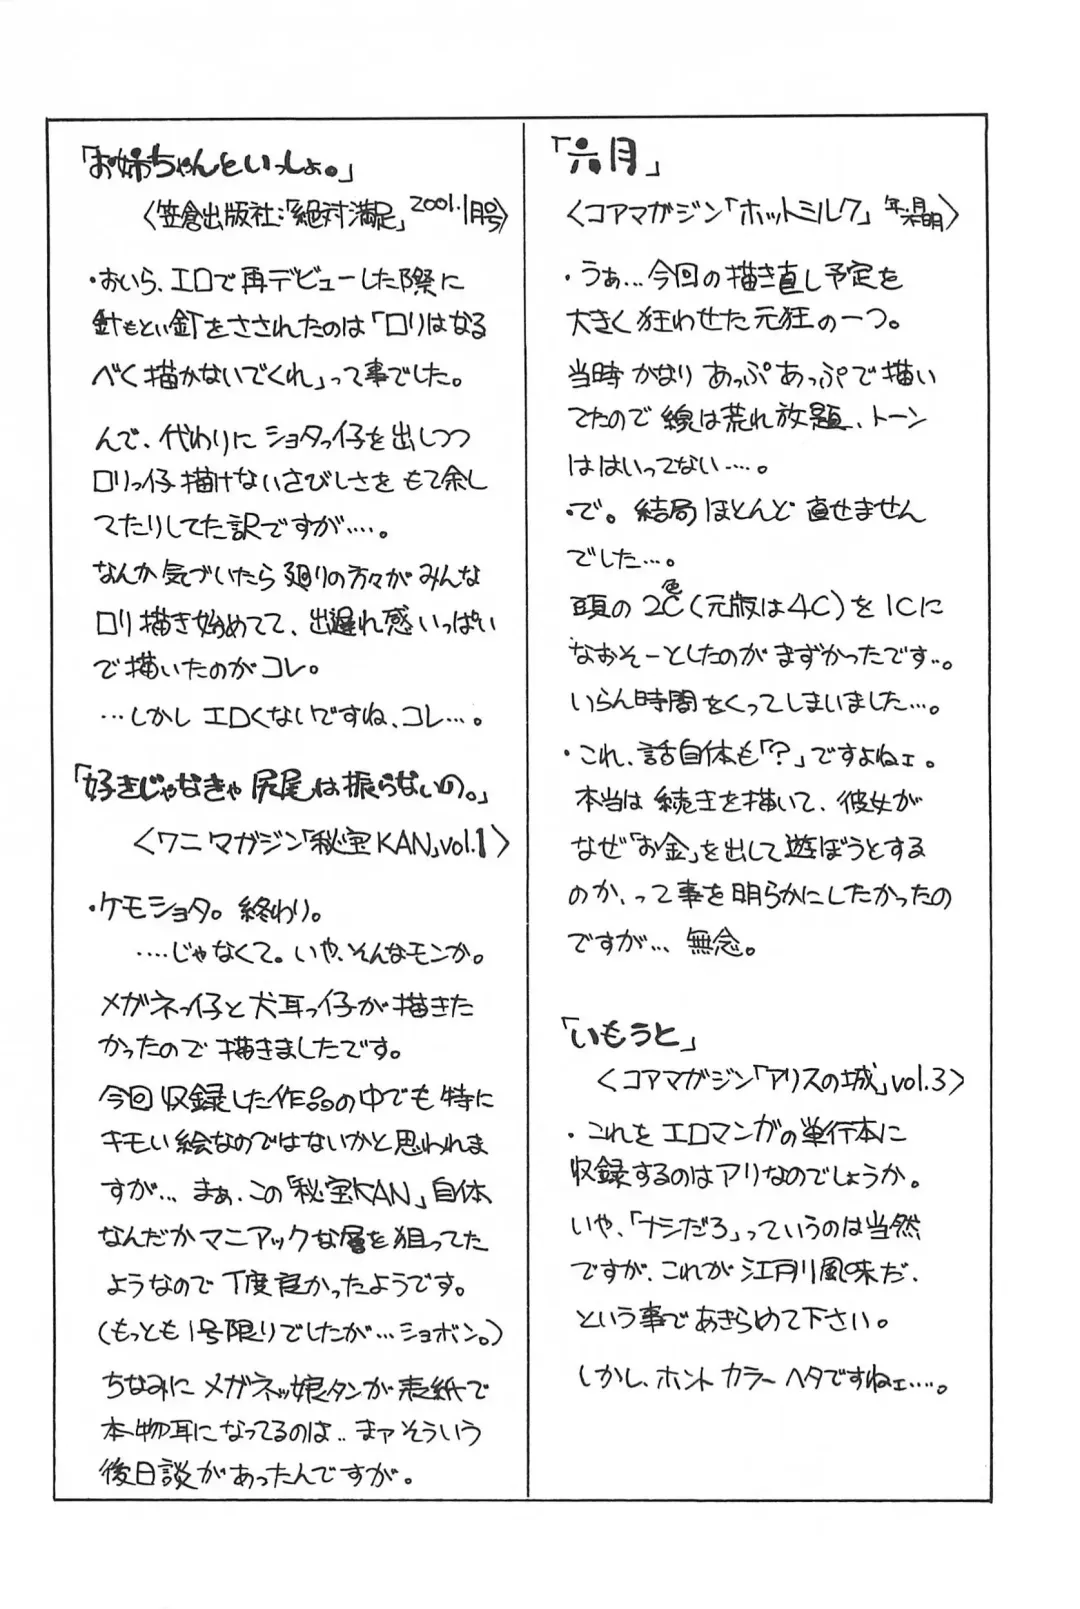 「お姉ちゃんといっしょ。」
〈笠倉出版社:「絶対満足」2001.1月号〉
・おいら、エロで再デビューした際に
針もとい釘をさされたのは「ロリはなる
べく描かないでくれ」って事でした。
んで、代わりにショタっ仔を出しつつ
ロリっ仔描けないさびしさをもて余し
てたりしてた訳ですが‥‥。
なんか気づいたら廻りの方々がみんな
ロリ描き始めてて、出遅れ感いっぱい
で描いたのがコレ。
…しかしエロくないですね、コレ…。
「好きじゃなきゃ尻尾は振らないの。」
〈ワニマガジン「秘宝KAN」vol.1〉
・ケモショタ。終わり。
‥‥じゃなくて。いや、そんなモンか。
メガネっ仔と犬耳っ仔が描きた
かったので描きましたです。
今回収録した作品の中でも特に
キモい絵なのではないかと思われま
すが… まぁ、この「秘宝KAN」自体、
なんだかマニアックな層を狙ってた
ようなので丁度良かったようです。
(もっとも1号限りでしたが…ショボン。)
ちなみにメガネッ娘タンが表紙で
本物耳になってるのは‥まァそういう
後日談があったんですが。
「六月」
〈コアマガジン「ホットミルク」年月不明〉
・うぁ…今回の描き直し予定を
大きく狂わせた元狂の一つ。
当時かなりあっぷあっぷで描い
てたので線は荒れ放題、トーン
ははいってない‥‥。
・で。結局ほとんど直せません
でした…。
頭の2C色(元版は4C)を1Cに
なおそーとしたのがまずかったです‥。
いらん時間をくってしまいました…。
・これ、話自体も「?」ですよねェ。
本当は続きを描いて、彼女が
なぜ「お金」を出して遊ぼうとする
のか、って事を明らかにしたかったの
ですが… 無念。
「いもうと」
〈コアマガジン「アリスの城」vol.3〉
・これをエロマンガの単行本に
収録するのはアリなのでしょうか。
いや、「ナシだろ」っていうのは当然
ですが、これが江戸川風味だ、
という事であきらめて下さい。
しかし、ホントカラーヘタですねェ‥‥。